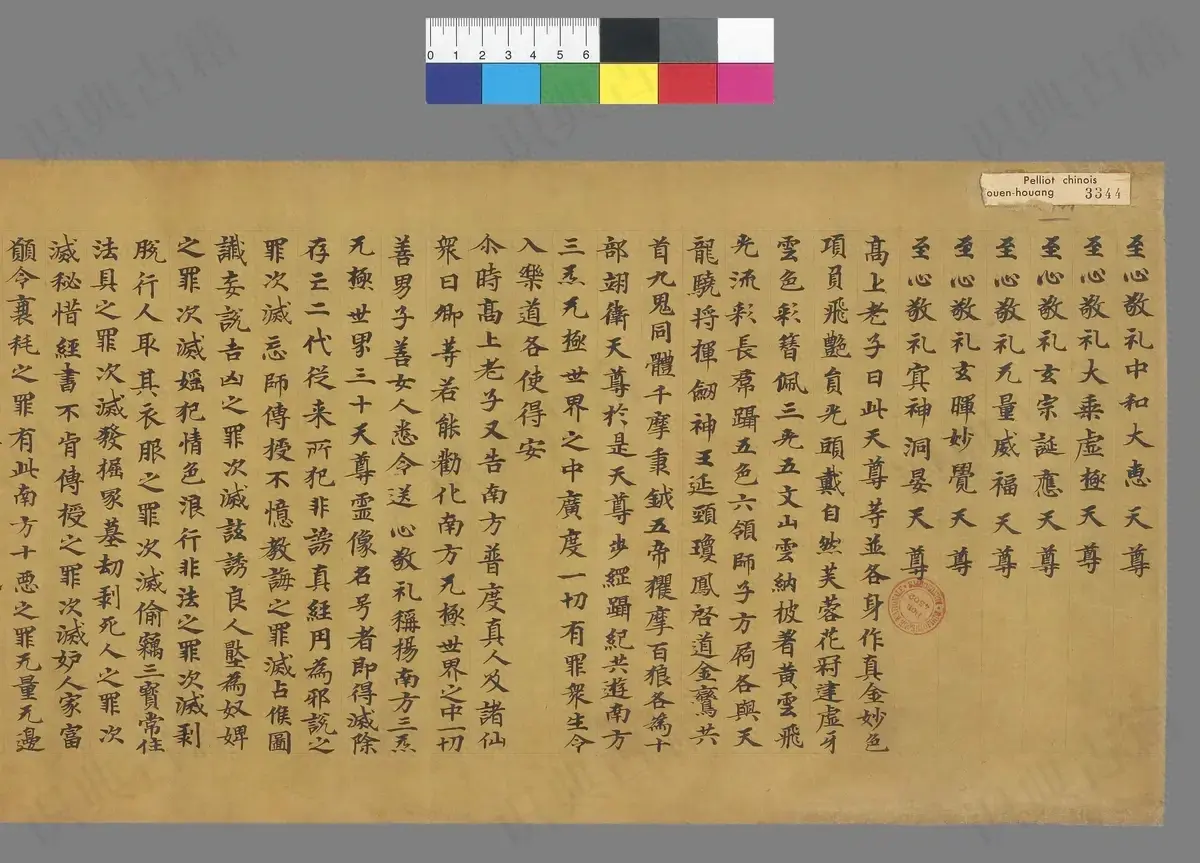 Pelliot chinois
ouen-houang 3344
0 1 2 3 4 5 6
至心敬礼中和大惠天尊
至心敬礼大乘虚極天尊
至心敬礼玄宗誕應天尊
至心敬礼无量威福天尊
至心敬礼玄暉妙覺天尊
至心敬礼寘神洞晏天尊
髙上老子曰此天尊等並各身作真金妙色
項負飛艷負光頭戴自然芙蓉花冠建虚牙
雲色彩簪佩三光五文山雲納披著黄雲飛
光流彩長帬躡五色六領師子方扄各與天
龍驍將揮劒神王延頸瓊鳳啓道金鸞共
首九鬼同體千摩秉鉞五帝擢摩百狼各為十
部翊衛天尊於是天尊步綱躡紀共遊南方
三炁无極世界之中廣度一切有罪衆生令
入樂道各使得安
尒時髙上老子又告南方普度真人及諸仙
衆曰卿等若能勸化南方无極世界之中一切
善男子善女人悉令送心敬礼稱揚南方三炁
无極世界三十天尊靈像名号者即得滅除
存亡二代從来所犯非謗真經円為邪說之
罪次滅忘師傅授不憶教誨之罪滅占候圖
讖妄說吉凶之罪次滅詃誘良人壓為奴婢
之罪次滅婬犯情色浪行非法之罪次滅剥
脫行人取其衣服之罪次滅偷竊三寶常住
法具之罪次滅發掘冢墓刧剥死人之罪次
滅秘惜經書不肯傳授之罪次滅妒人家富
願令襄秏之罪有此南方十惡之罪无量无邊